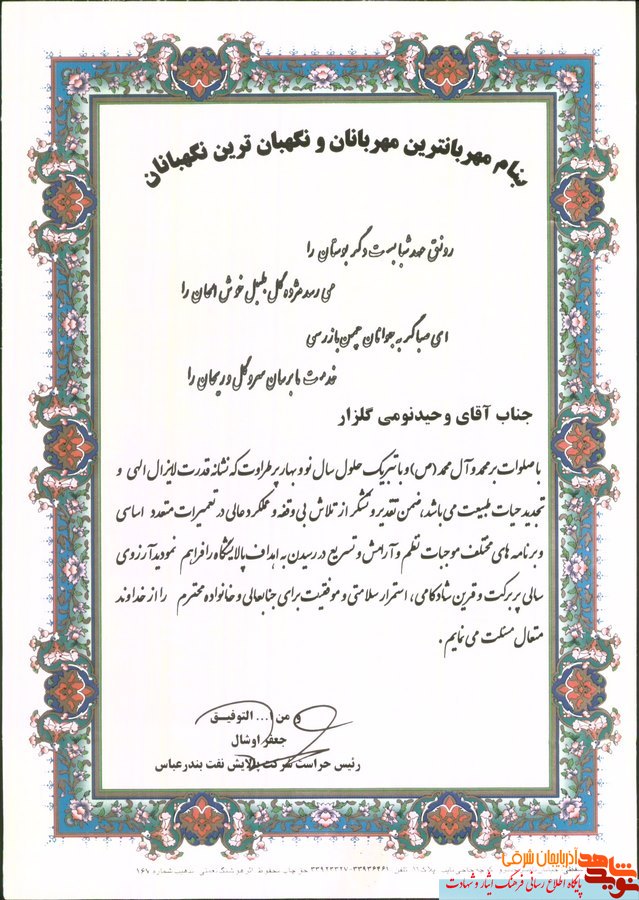 بنام مهربانترین مهربانان و نگهبان ترین نگهبانان
رونق عهد شبابست دگر بوستان را
می رسد مژده گل بلبل خوش الحان را
ای صبا گر به جوانان چمن بازرسی
خدمت ما برسان سرو گل و ریحان را
جناب آقای وحیدنومی گلزار
با صلوات بر محمد و آل محمد (ص) و با تبریک حلول سال نو و بهار پر طراوت که نشانه قدرت لایزال الهی و
تجدید حیات طبیعت می باشد، ضمن تقدیر و تشکر از تلاش بی وقفه و عملکرد عالی در تعمیرات متعدد اساسی
و برنامه های مختلف موجبات نظم و آرامش و تسریع در رسیدن به اهداف پالایشگاه را فراهم نمودید آرزوی
سالی پر برکت و قرین شادکامی، استمرار سلامتی و موفقیت برای جنابعالی و خانواده محترم را از خداوند
متعال مسئلت می نمایم.
و من ا... التوفیق
جعفر اوشال
رئیس حراست شرکت پالایش نفت بندرعباس
۳۳۹۲۳۲۷-۳۳۹۳۶۴۶۱
۱۶۷
نوید شاهد
آذربایجان شرقی
پایگاه اطلاع رسانی فرهنگ ایثار و شهادت